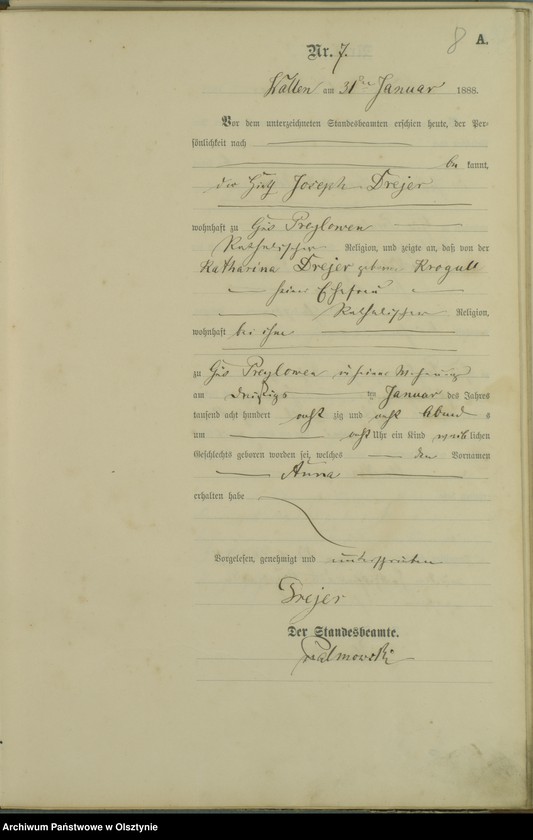 8 A.
Nr. 7.
am 31ten Januar 1888.
Vor dem unterzeichneten Standesbeamten erschien heute, der Per-
sönlichkeit nach
be kannt,
der Joseph Drejer
wohnhaft zu Preylowen
Katholischer Religion, und zeigte an, daß von der
Katharina Drejer geboren Krogull
seiner Ehefrau
Katholischer Religion,
wohnhaft bei ihm
zu Preylowen in seiner Wohnung
am dreißigsten Januar des Jahres
tausend acht hundert acht zig und acht Abend s
um acht Uhr ein Kind weib lichen
Geschlechts geboren worden sei, welches den Vornamen
Anna
erhalten habe
Vorgelesen, genehmigt und unterschrieben
Drejer
Der Standesbeamte.
Palmowski
Archiwum Państwowe w Olsztynie